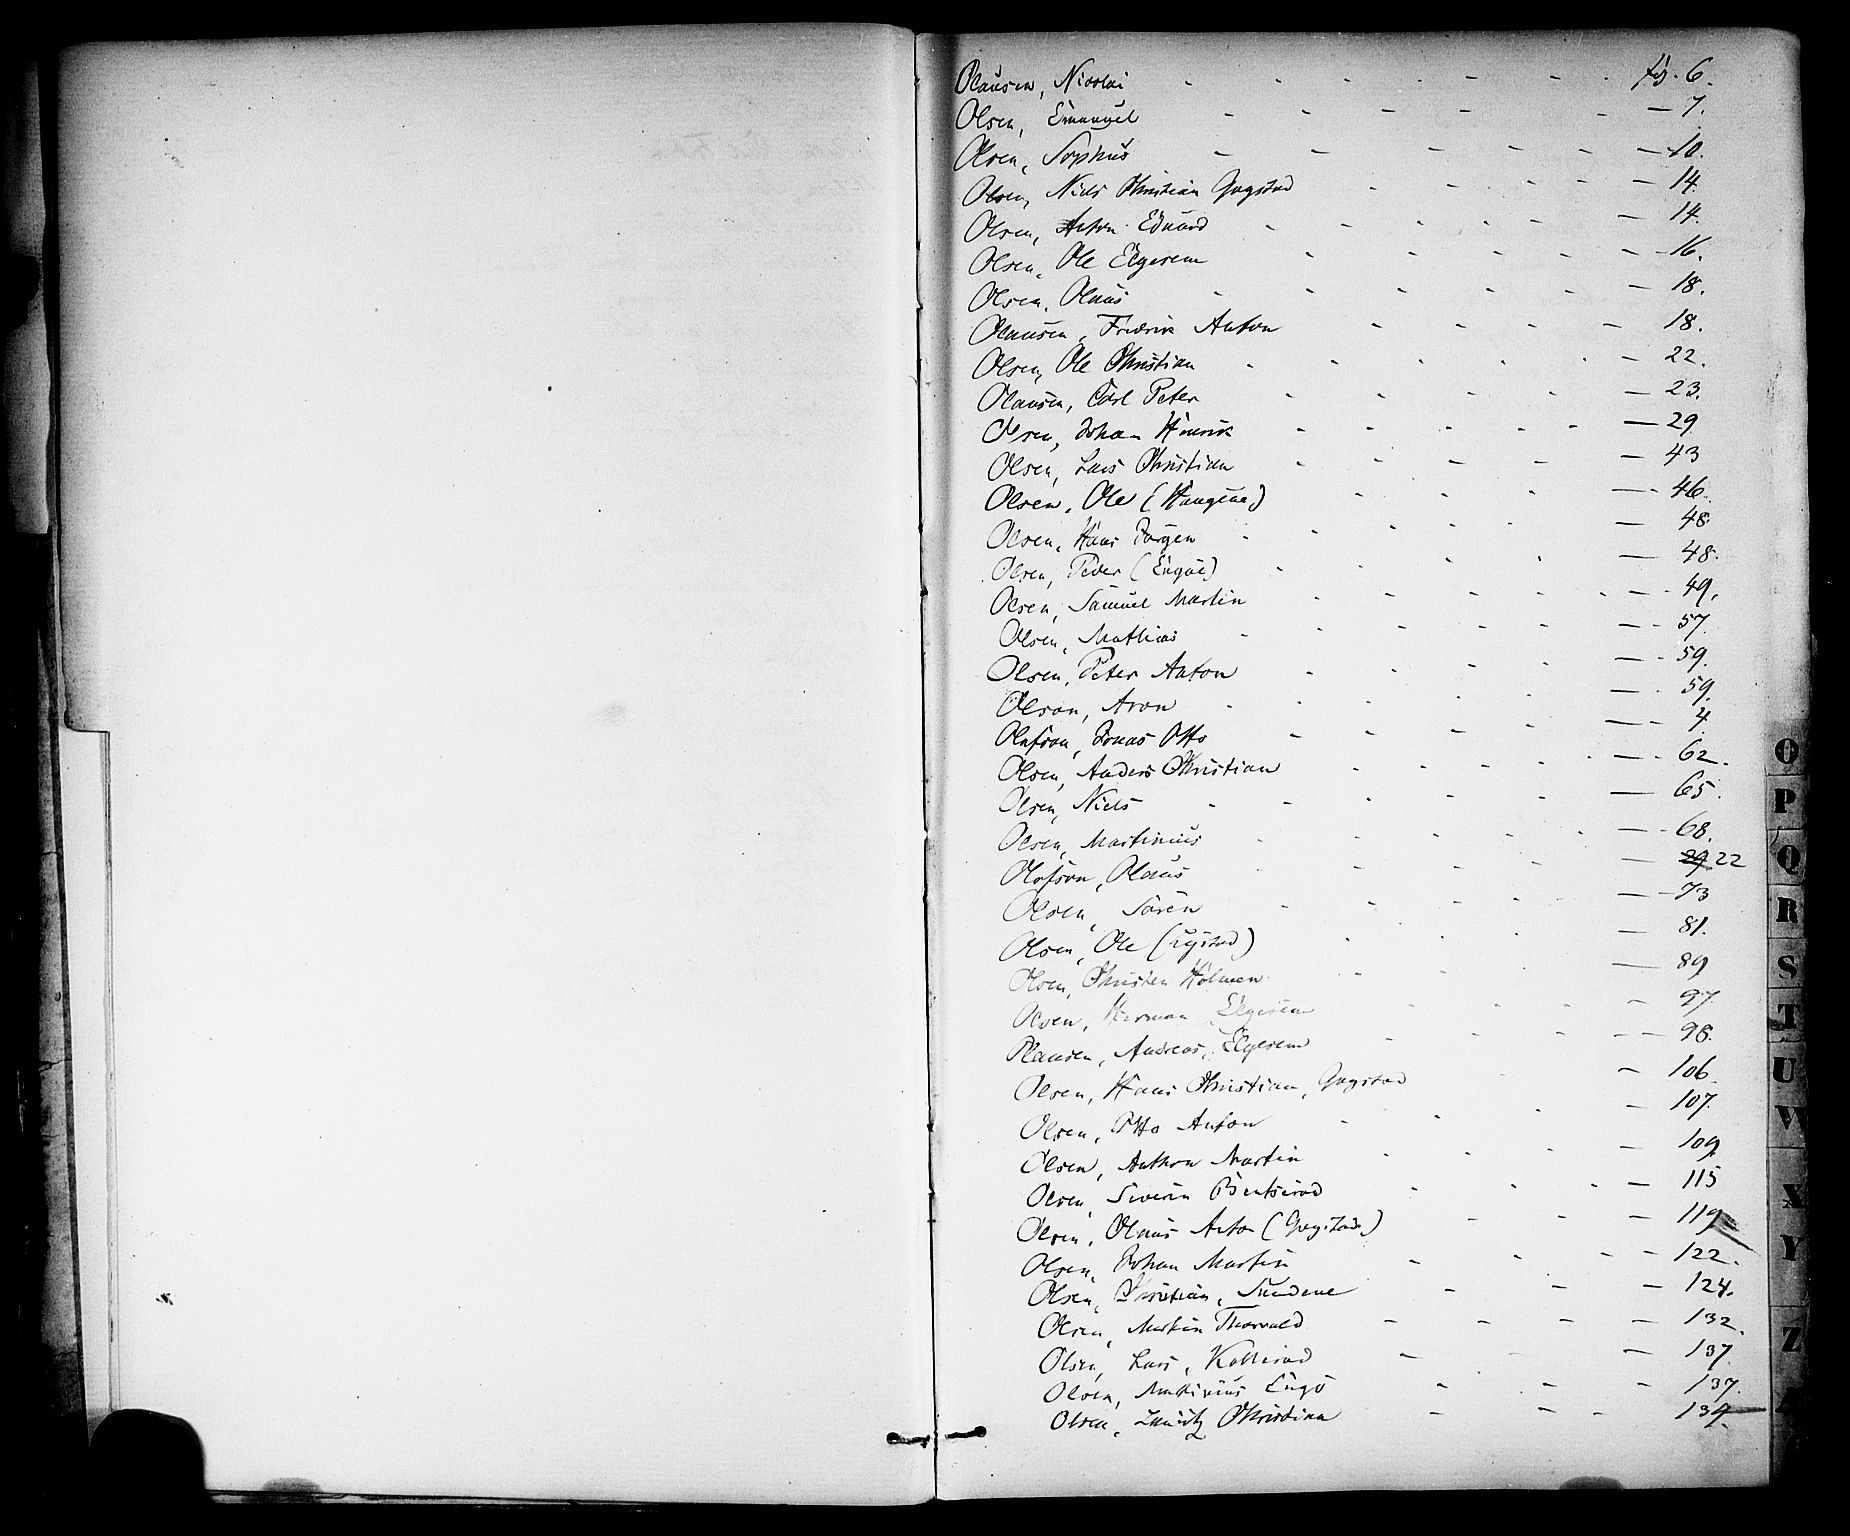 Olausen, Nicolai - - - - - - fig. 6.
Olsen, Emanuel - - - - - - 7.
Olsen, Sophus - - - - - 10.
Olsen, Niels Christian Gogstad - - - - 14.
Olsen, Anton Eduard - - - - - 14.
Olsen, Ole Elgesem - - - - - 16.
Olsen, Olaus - - - - - - 18.
Olausen, Fredrik Anton - - - - 18.
Olsen, Ole Christian - - - - - 22.
Olausen, Carl Peter - - - - - 23.
Olsen, Johan Hinrik - - - - - 29
Olsen, Lars Christian - - - - - 43
Olsen, Ole (Haugene) - - - - 46.
Olsen, Hans Jørgen - - - - - 48.
Olsen, Peder (Engøe) - - - - 48.
Olsen, Samuel Martin - - - - - 49.
Olsen, Mathias - - - - - 57.
Olsen, Peter Anton - - - - 59.
Olson, Aron - - - - - 59.
Olafson, Jonas Otto - - - - 4
Olsen, Anders Christian - - - - 62.
Olsen, Niels - - - - - 65.
Olsen, Martinius - - - - - 68.
Olofson, Olaus - - - - - 29 22
Olsen, Søren - - - - - 73
Olsen, Ole (Lystad) - - - - 81.
Olsen, Christen Holmen - - - 89
Olsen, Herman, Elgesem - - - 97.
Olausen, Andreas, Elgesem - - - 98.
Olsen, Hans Christian, Gogstad - - 106.
Olsen, Otto Anton - - - - 107.
Olsen, Anthon Martin - - - - 109
Olsen, Severin Bentserød - - - - 115
Olsen, Olaus Anton (Gogstad) - - - 119
Olsen, Johan Martin - - - - 122.
Olsen, Christian, Sundene - - - 124.
Olsen, Martin Thorvald - - - - 132.
Olsen, Lars, Kallerød - - 137.
Olsen, Martinius Engø - - - 137.
Olsen, Christian - - - 139.
O
P
Q
R
S
T
U
W
X
Y
Z